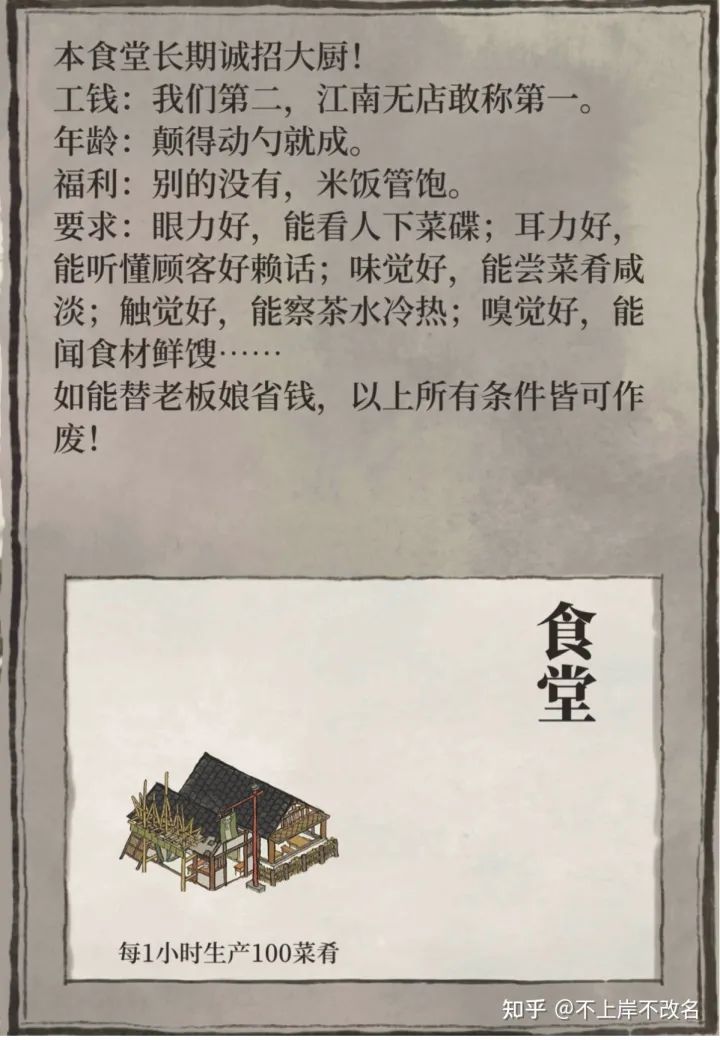 本食堂长期诚招大厨！
工钱：我们第二，江南无店敢称第一。
年龄：颠得动勺就成。
福利：别的没有，米饭管饱。
要求：眼力好，能看人下菜碟；耳力好，
能听懂顾客好赖话；味觉好，能尝菜肴咸
淡；触觉好，能察茶水冷热；嗅觉好，能
闻食材鲜馊……
如能替老板娘省钱，以上所有条件皆可作
废！
食堂
每1小时生产100菜肴
知乎 @不上岸不改名